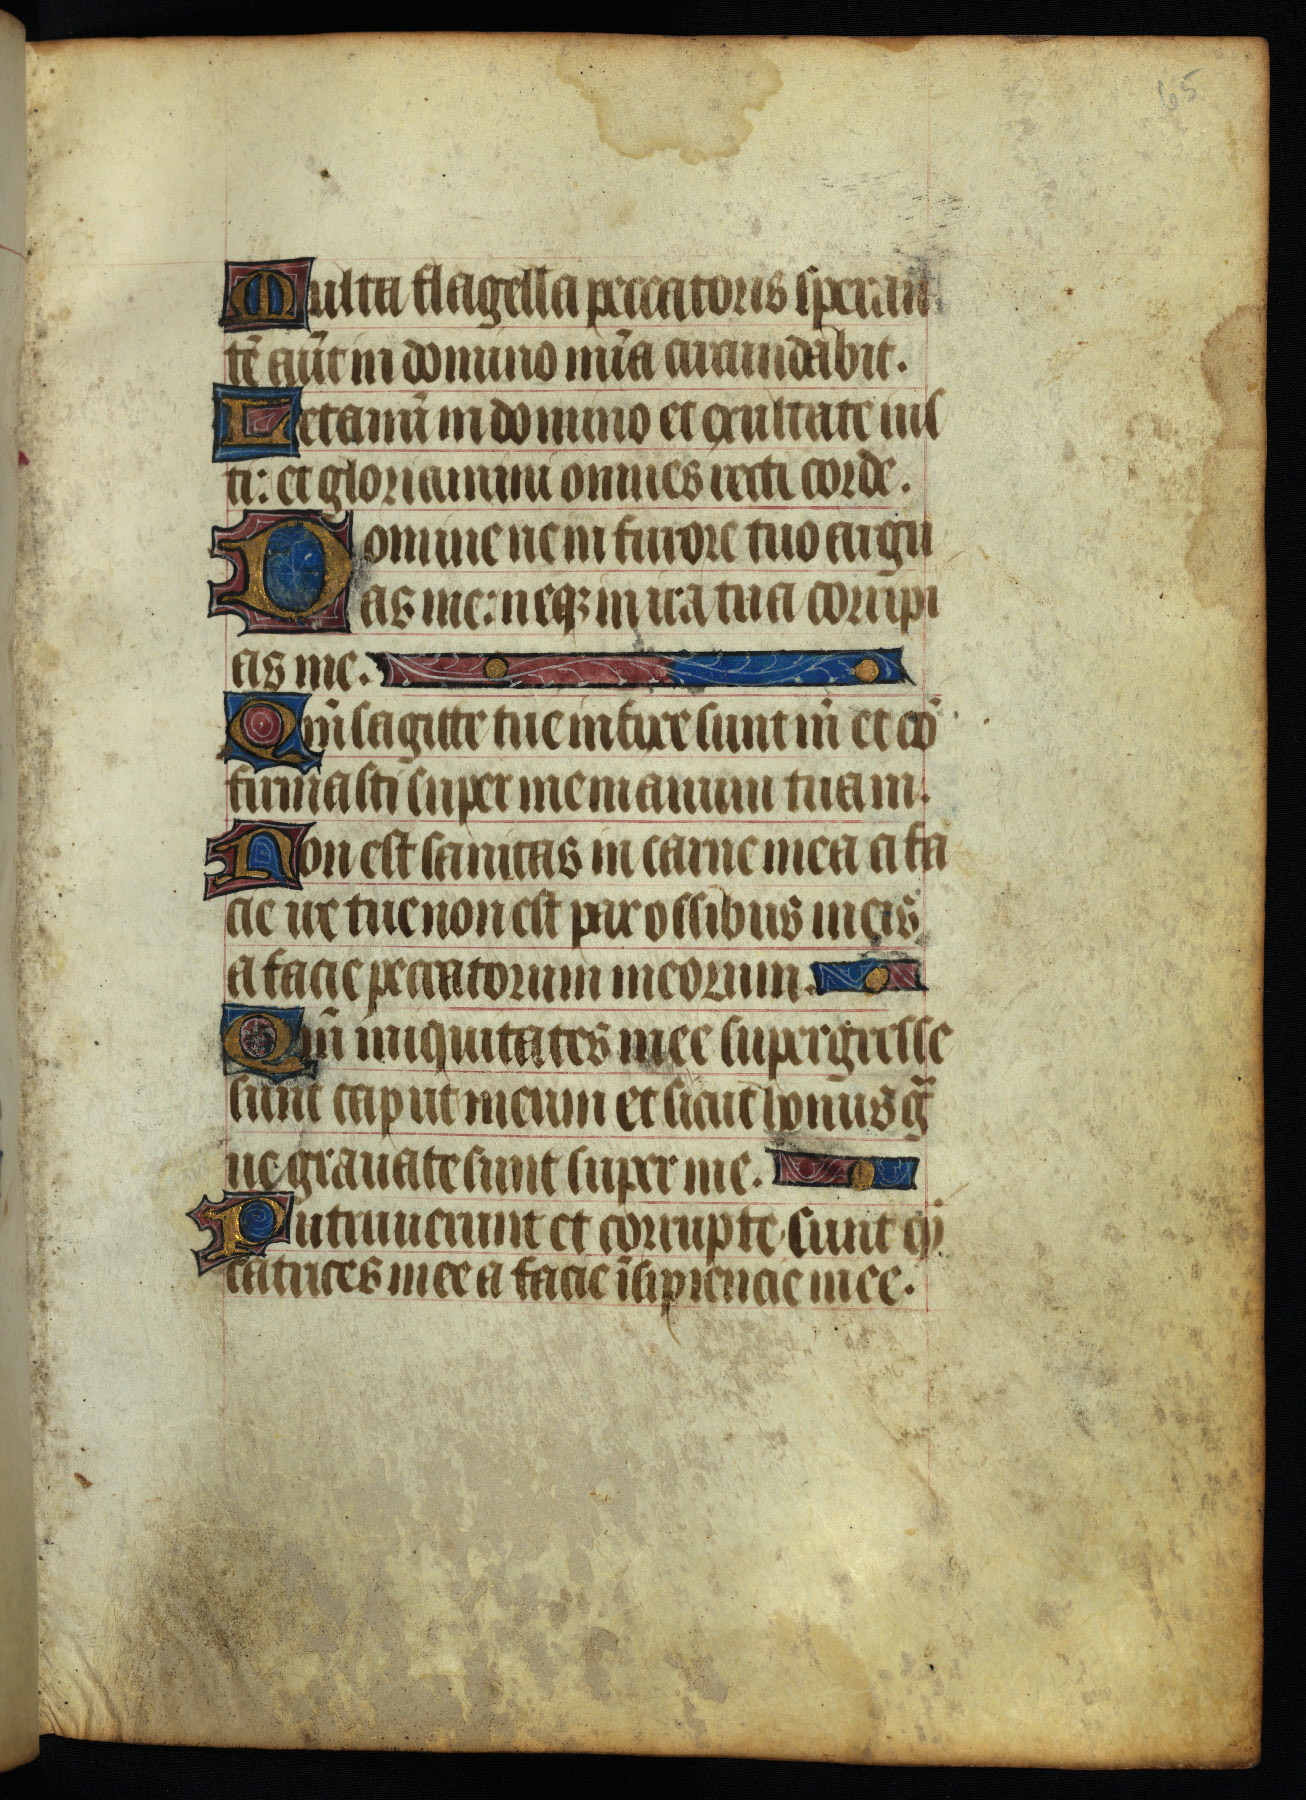 65
Multa flagella peccatoris speran
tē aūt in domino mīa circundabit.
Letamī in domino et exultate ius
ti: et gloriamini omnes recti corde.
Domine ne in furore tuo argu
as me: neqꝫ in ira tua corripi
as me.
Qm̄ sagitte tue infixe sunt m̄ et cō
firmasti super me manum tuam.
Non est sanitas in carne mea a fa
cie ire tue non est pax ossibus meis
a facie peccatorum meorum.
Qm̄ iniquitates mee supergresse
sunt caput meum et sicut honus gͣ
ue grauate sunt super me.
Putruuerunt et corrupte sunt cy
catrices mee a facie īsipiencie mee.